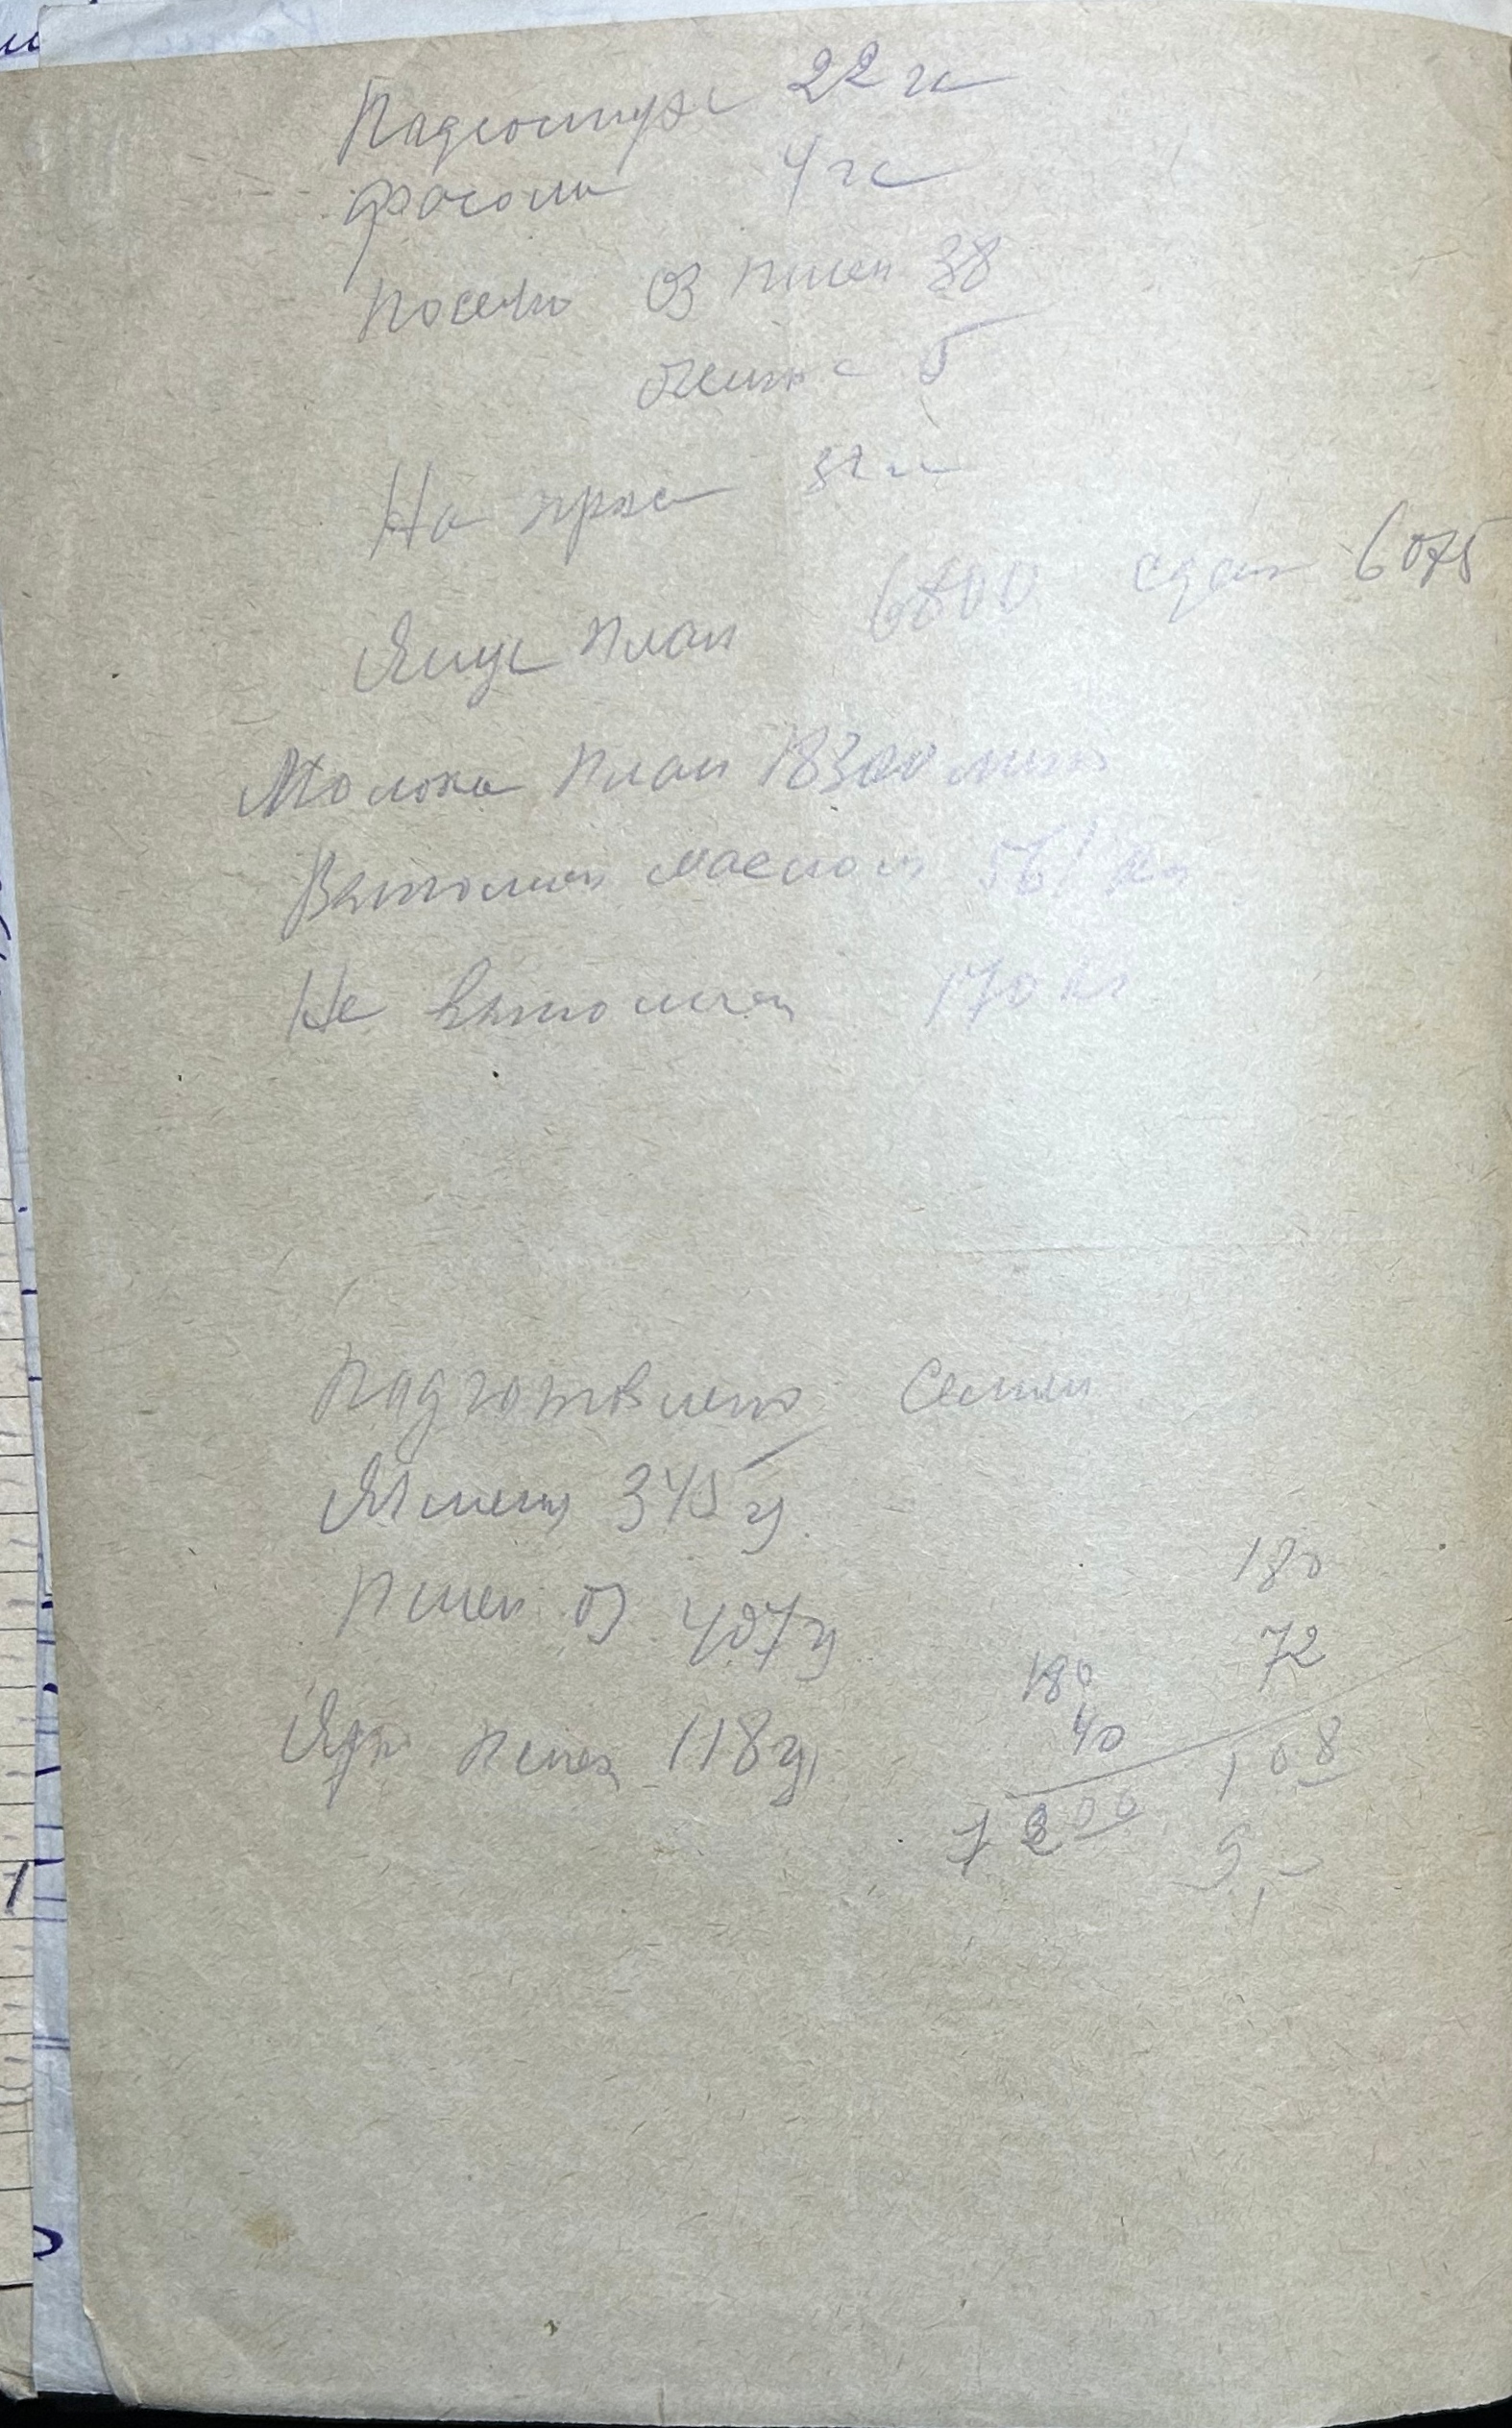 Падсолнух 22 га
фасоли 4 га
Посеяно оз пшен 38
5
На 32 га
Яиц план 6800 сдан 6075
Молока План 18300 литр
Выполнен маслом 561 кг
Не выполнен 170 кг
Падготовлено Семян
Ячмень 345 ц
Пшен оз 407 ц
Яро пшен 118 ц
180
72
108
180
40
7200